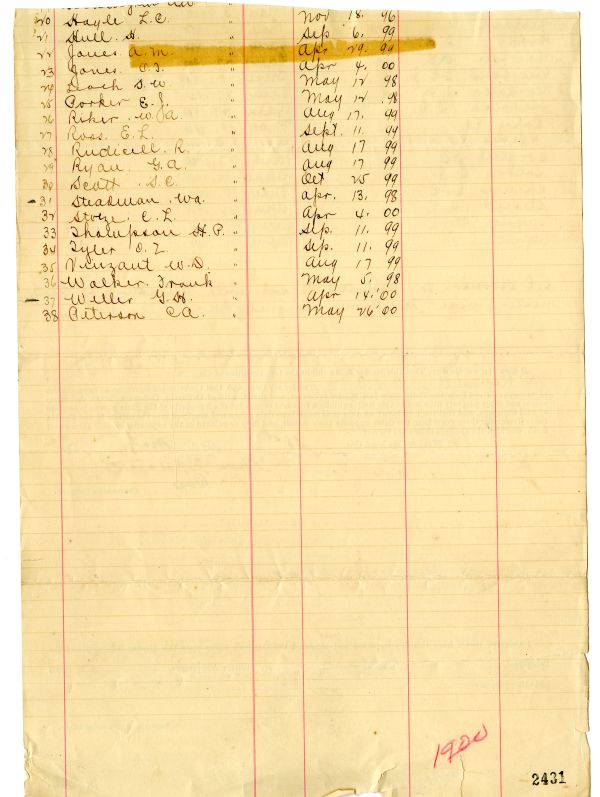 20 Hayle L.C. " Nov 18. 96
21 Hull H. " Sep 6. 99
22 Jones A.M. " Apr 29. 99
23 Jones O.I. " Apr 4. 00
24 Leach S.W. " May 12 98
25 Porker E.J. " May 12 .98
26 Riker W.A. " Aug 17. 99
27 Ross E.L. " Sept. 11. 99
28 Rudicell R. " Aug 17 99
29 Ryan G.A. " Aug 17 99
30 Scott S.C. " Oct 25 99
31 Steadman Wa. " Apr. 13. 98
32 C.L. " Apr 4. 00
33 Thompson H.P. " Sep. 11. 99
34 Tyler O.Z. " Sep. 11. 99
35 Venzant W.D. " Aug 17 99
36 Walker Frank " May 5. 98
37 Weller G.H. " Apr 14.'00
38 Peterson C.A. " May 26'00
1900
2431